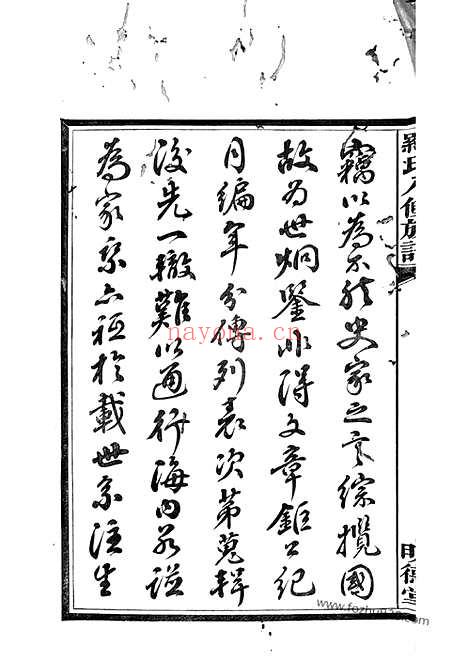 羅氏八修族譜
明德堂
竊以為不然史家之言綜攬國
故為世炯鑒非得文章鉅公紀
月編年分傳列表次第蒐輯
後先一轍難以通行海內若譜
為家乘亦祗於載世系注生
nayona.cn
www.fozhu920.com